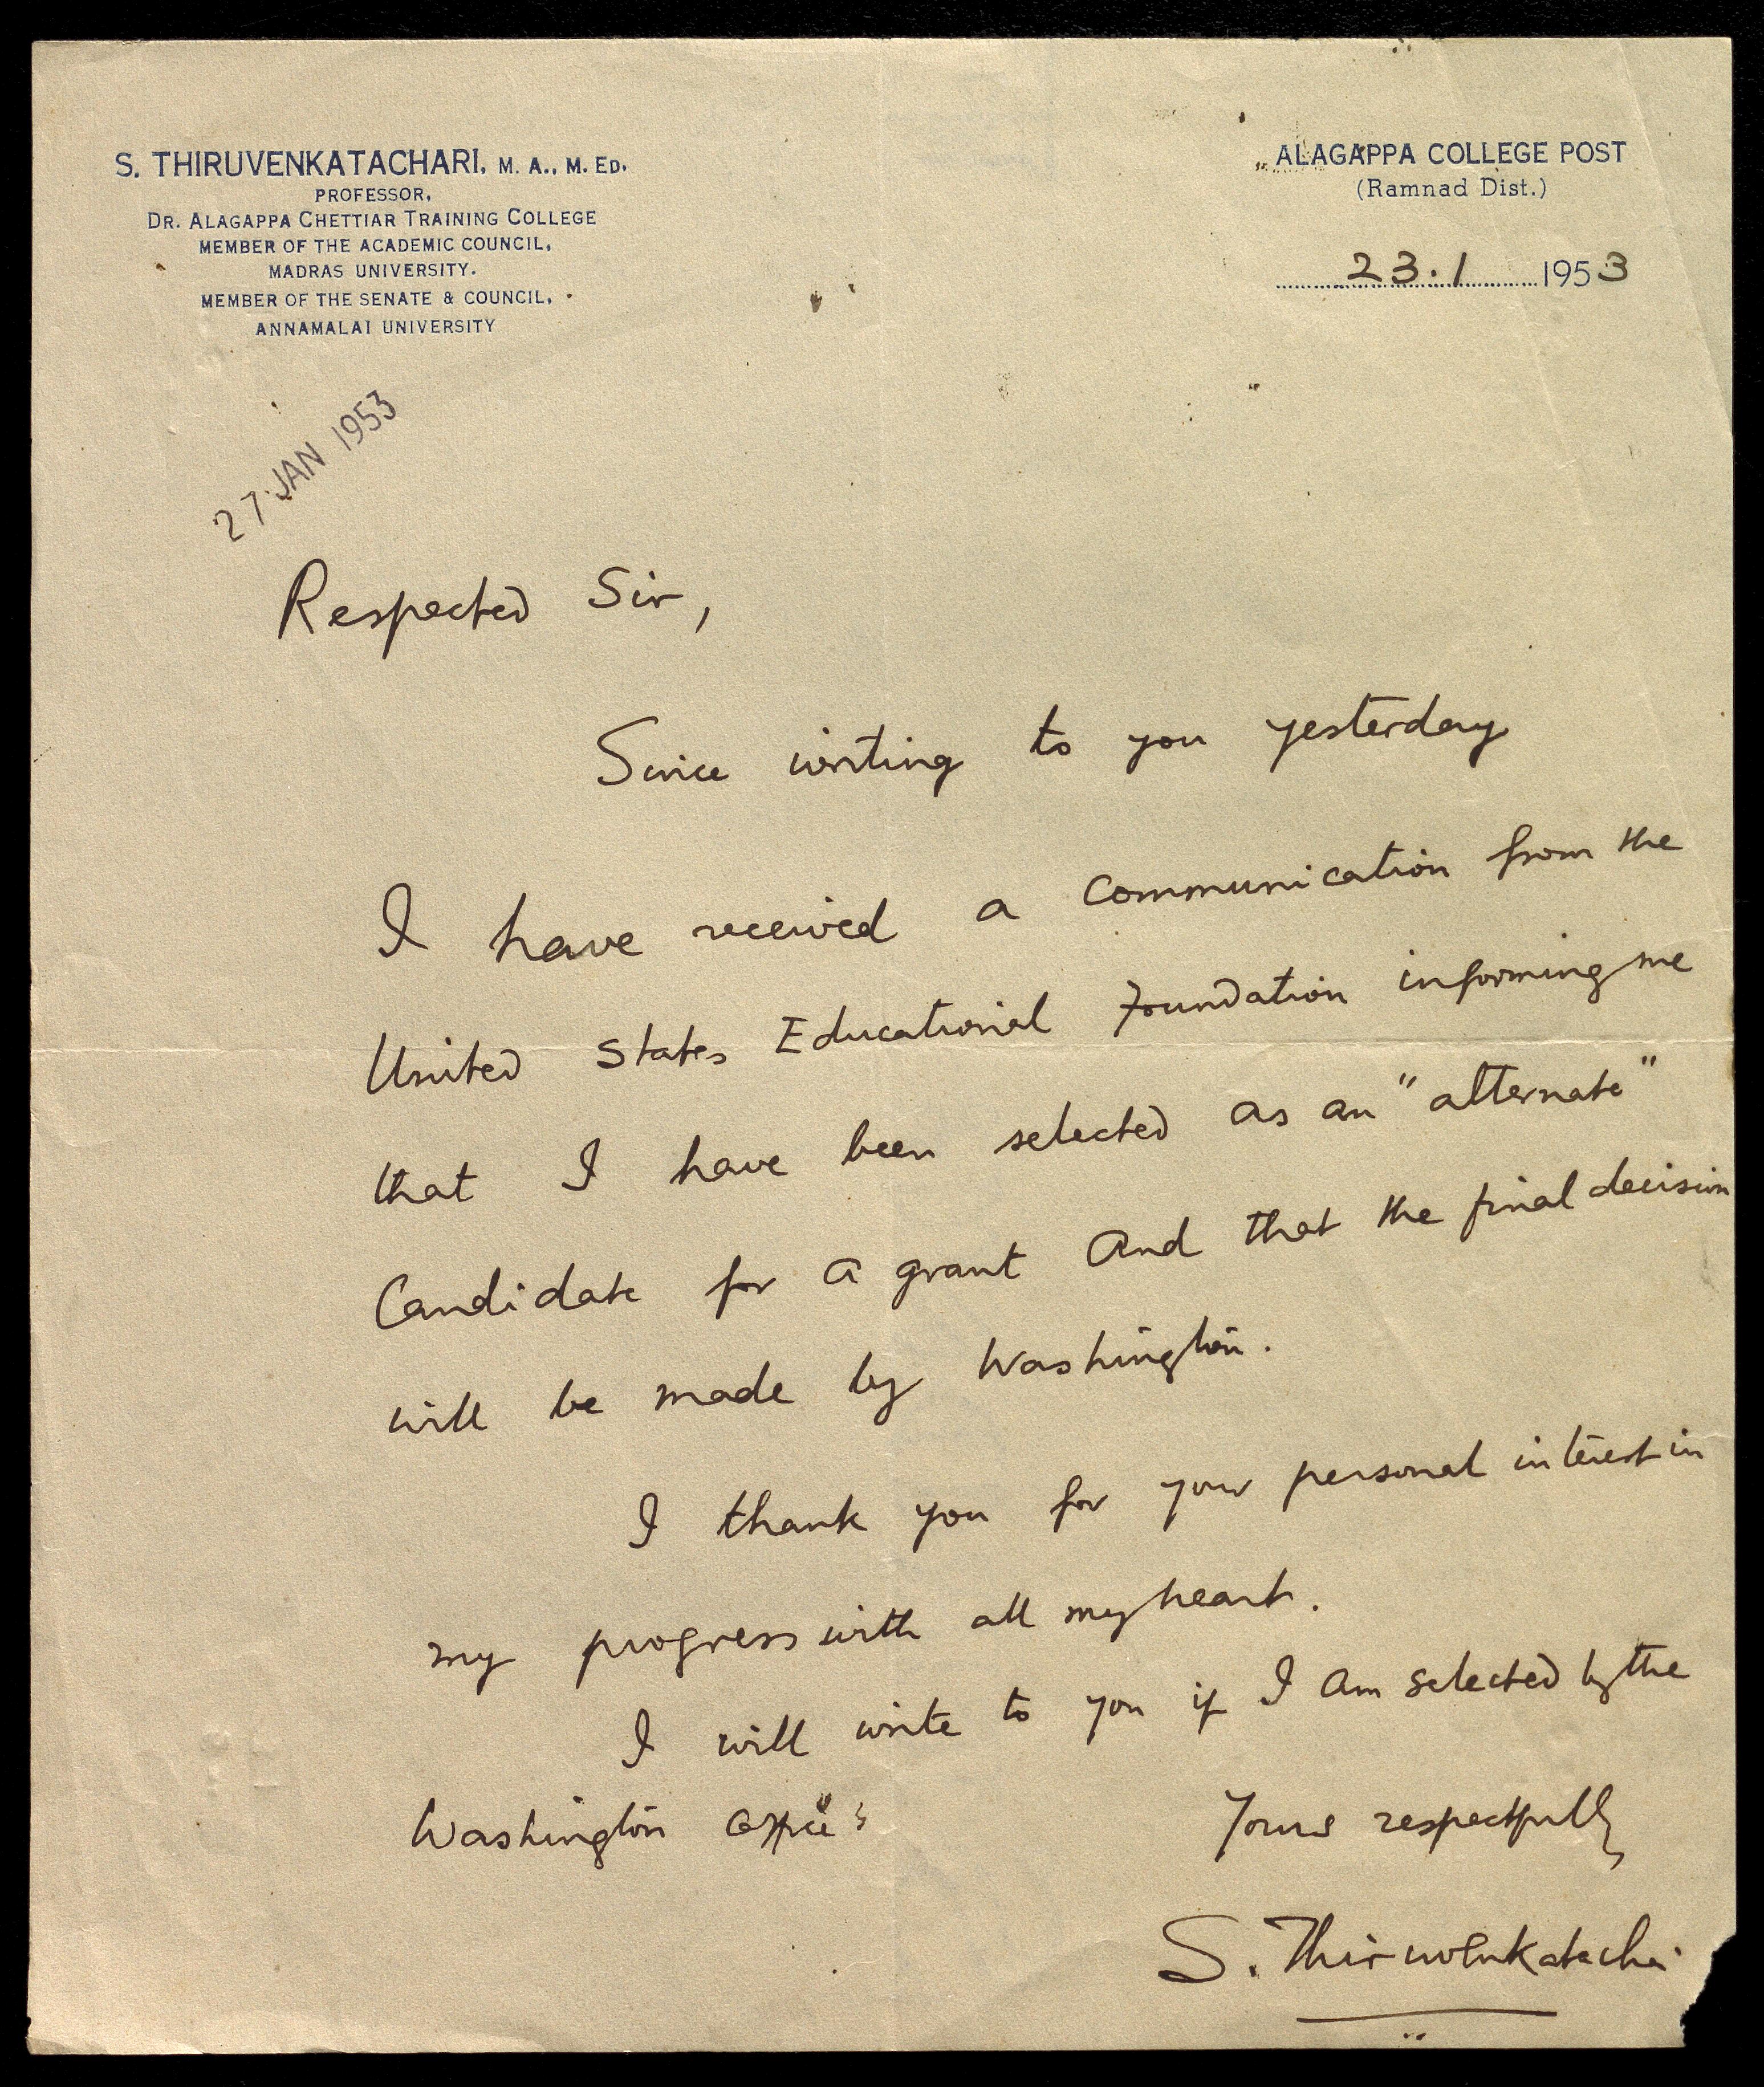 S. THIRUVENKATACHARI, M. A., M. ED.
PROFESSOR,
DR. ALAGAPPA CHETTIAR TRAINING COLLEGE
MEMBER OF THE ACADEMIC COUNCIL,
MADRAS UNIVERSITY.
MEMBER OF THE SENATE & COUNCIL,
ANNAMALAI UNIVERSITY
ALAGAPPA COLLEGE POST
(Ramnad Dist.)
23.1 1953
27 JAN 1953
Respected Sir,
Since writing to you yesterday
I have received a communication from the
United States Educational Foundation informing me
that I have been selected as an "alternate"
Candidate for a grant and that the final decision
will be made by Washington.
I thank you for your personal interest in
my progress with all my heart.
I will write to you if I am selected by the
Washington office
Yours respectfully
S. Thiruvenkatachari